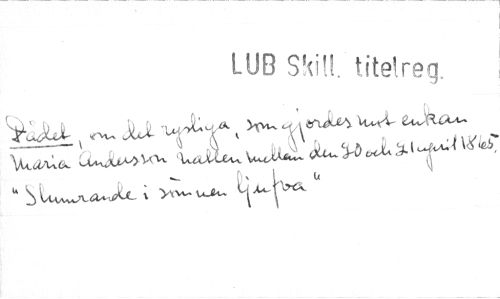 LUB Skill. titelreg.
Dådet, om det rysliga, som gjordes mot enkan
Maria Andersson natten mellan den 20 och 21 april 1865.
"Slumrande i sömnen ljufva"